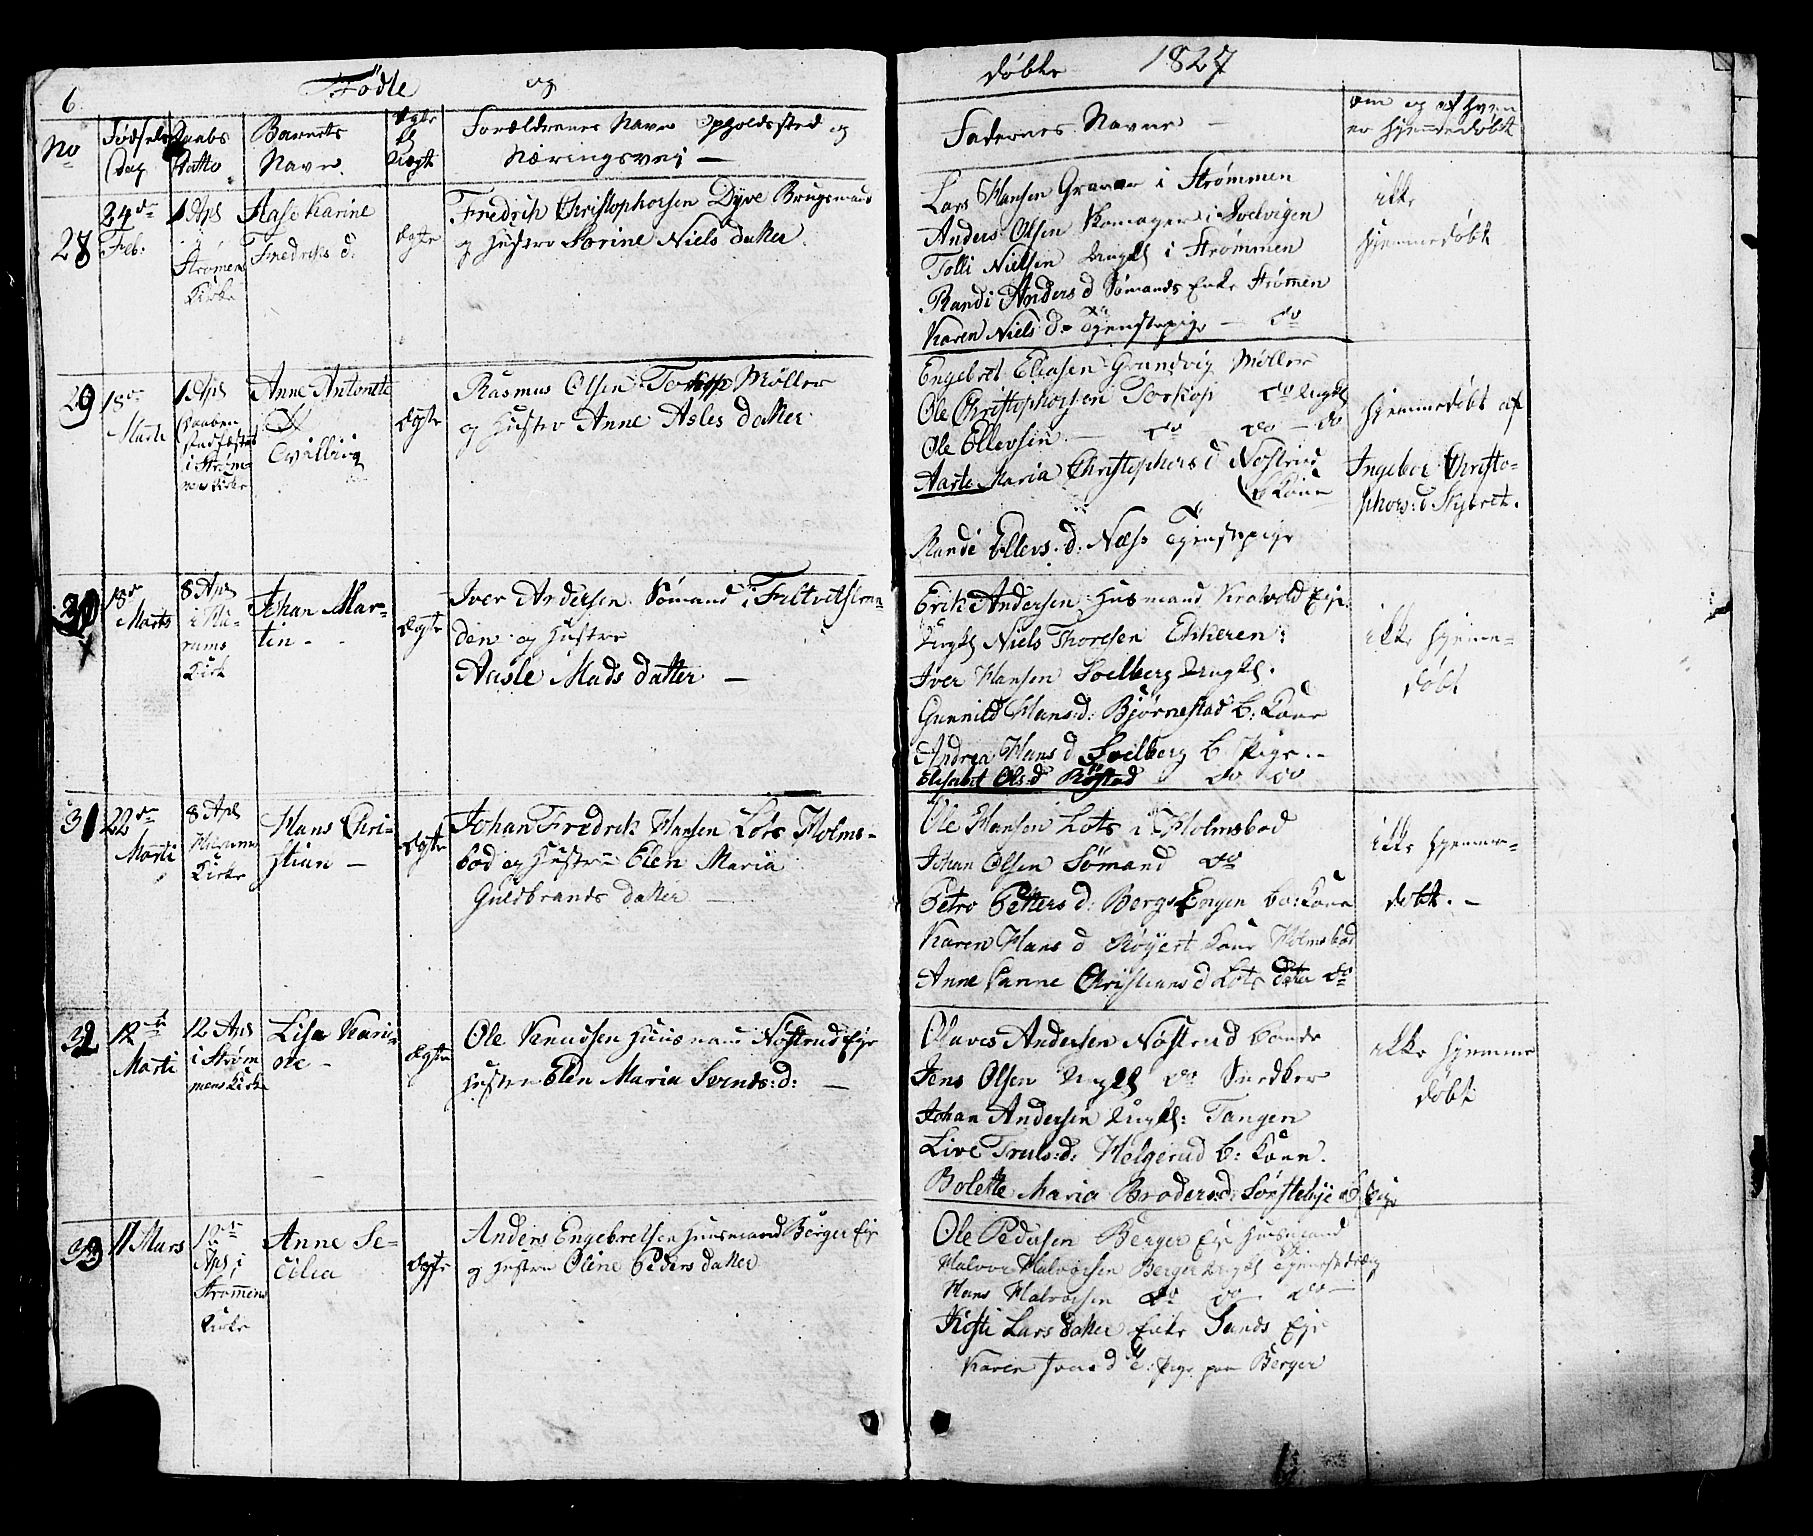 6
Födte og
døbte 1827
No
Fødsels Dag
Daabs Datto
Barnets Navn
Ægte el Uægte
Forældrenes Navn Opholdssted og
Næringsvei —
Fadernes Navne —
om og af hvem
er hjemmedøbt
28
24de Feb.
1 Apl i Strømens Kirke
Aase Karine
Fredriks d:
Ægte
Fredrik Christophersen Dyve Brugsmand
og Hustro Sorine Niels datter.
Lars Hansen Graver i Strømmen
Anders Olsen Skomager i Svelvigen
Tolli Nielsen Ungkl i Strømmen
Randi Anders d Sømands Enke Strømen
Karen Niels d: Tjenstepige — do
ikke
hjemmedøbt
29
18de Marti
1 Apl Daaben stadfæstet i Strømmens Kirke
Anne Antonette
Tvilling
Ægte
Rasmus Olsen Torkop Møller
og Hustro Anne Asles datter
Engebret Eliasen Grundvig Møller
Ole Christophersen Torkop do Ungkl
Ole Ellevsen — do do — do
Marte Maria Christophers d Nøstrud
b Kone
Randi Ellevs: d: Næss Tjenstepige
hjemmedøbt af
Ingebor Christo-
phors: d
30
18de Marts
8 Apl i Hurums Kirk
Johan Mar-
tin —
Ægte
Iver Andersen Sømand i Filtvetstran-
den og Hustro
Aasle Mads datter —
Erik Andersen Husmand Eje.
Ungkl Niels Thoresen Ekkeren:
Iver Hansen Soelberg Ungkl.
Gunnild Hans: d: Bjørnestad b: Kone
Andrea Hans d Soelberg b Pige. —
Elisabet Ols: d Røstad do do
ikke hjemme-
døbt
31
22de Marti
8 Apl Hurums Kirke
Hans Chri-
stian —
Ægte
Johan Fredrik Hansen Lots Holms-
bod og Hustro Elen Maria
Guldbrands datter —
Ole Hansen Lots i Holmsbod
Johan Olsen Sømand do
Petro Petters d: Bergs Engen bo: Kone
Karen Hans d Røyert Kone Holmsbod
Anne Karine Christians d Lots datter do
ikke hjemme-
døbt. —
32
12te Marti
12 Apl i Strømmens Kirke
Lisa Kari-
ne —
Ægte
Ole Knudsen Huusmand Nøstrud Eje
Hustro Elen Maria Svends: d: —
Olaves Andersen Nøstrud bonde
Jens Olsen Ungkl do Snedker
Johan Andersen Ungkl: Tangen
Live Truls: d: Helgerud b: Kone.
Bolette Maria Broders: d: Sørstebye Pige
ikke hjemme
døbt
33
11 Mars
12te Apl i Strømmens Kirke
Anne Se-
cilia
Ægte
Anders Engebretsen Huusmand Berger Eje
og Hustro Oline Peders datter
Ole Pedersen Berger Eje Huusmand
Halvor Halvorsen Berger Ungkl Tjenestedræg
Hans Halvorsen do do — do —
Kisti Lars datter Enke Sands Eje
Karen Ivers d Pige paa Berger